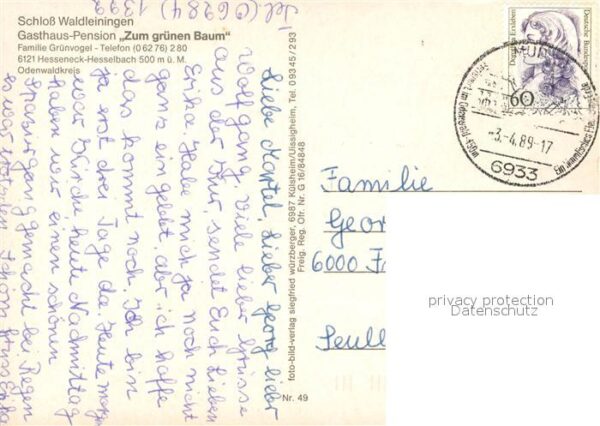 Schloß Waldleiningen
Gasthaus-Pension „Zum grünen Baum"
Familie Grünvogel - Telefon (0 62 76) 2 80
6121 Hesseneck-Hesselbach 500 m ü. M.
Odenwaldkreis
Tel. (06284) 1392
Liebe Martel, lieber Georg, lieber
Wolfgang. Viele lieber Grüsse
aus der Kur, sendet Euch lieben
Erika. Habe mich ja noch nicht
ganz eingelebt, aber ich hoffe
das kommt noch. Ich bin
ja erst drei Tage da. Heute morgen
war Kirche heute Nachmittag
haben wir einen schönen
Spaziergang gemacht bei Regen
es war schön
foto-bild-verlag siegfried würzberger, 6987 Külsheim/Uissigheim, Tel. 0 93 45/2 93
Freig. Reg. Ofr. Nr. G 16/84848
Nr. 49
Deutsche Bundespost
60
-3.-4.89-17
6933
Familie
Geor
6000 F
privacy protection
Datenschutz